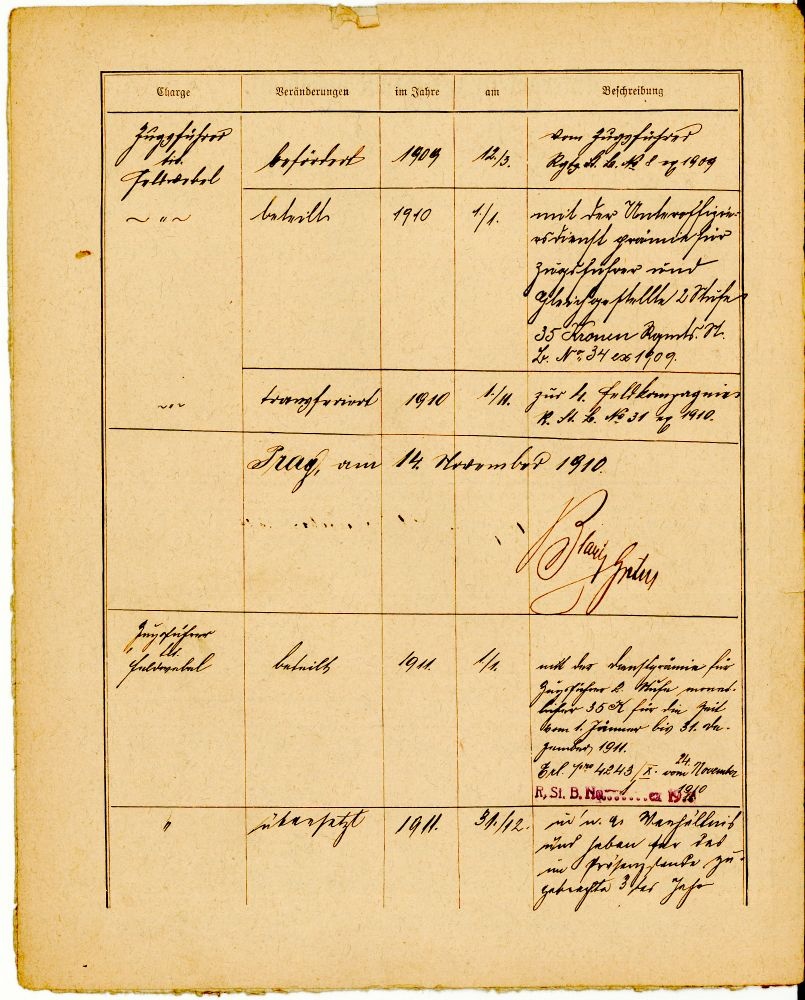 Charge Veränderungen im Jahre am Beschreibung
Zugsführer
tit.
Feldwebel
befördert 1909 12./3. vom Zugsführer
Rgts. St. B. No 8 ex 1909
~ " ~ beteilt 1910 1./1. mit der Unteroffizie-
rsdienst prämie für
Zugsführer und
Gleichgestellte 2 Stufe
35 Kronen Rgmts. St.
B. No. 34 ex 1909.
~"~ transferiert 1910 1./11. zur 4. Feldkompagnie
R. St. B. No 31 ex 1910.
Prag, am 14. November 1910.
Zugsführer
tit.
Feldwebel
beteilt 1911. 1./1. mit der Dienstprämie für
Zugsführer 2. Stufe monat-
licher 35 K für die Zeit
vom 1. Jänner bis 31. De-
zember 1911.
Erl. 4243/X. vom 24. November
1910
R. St. B. No........ ex 19
" übersetzt 1911. 31./12. in n. a. Verhältnis
und haben für das
im Präsenzstande zu-
gebrachte 3te Jahr